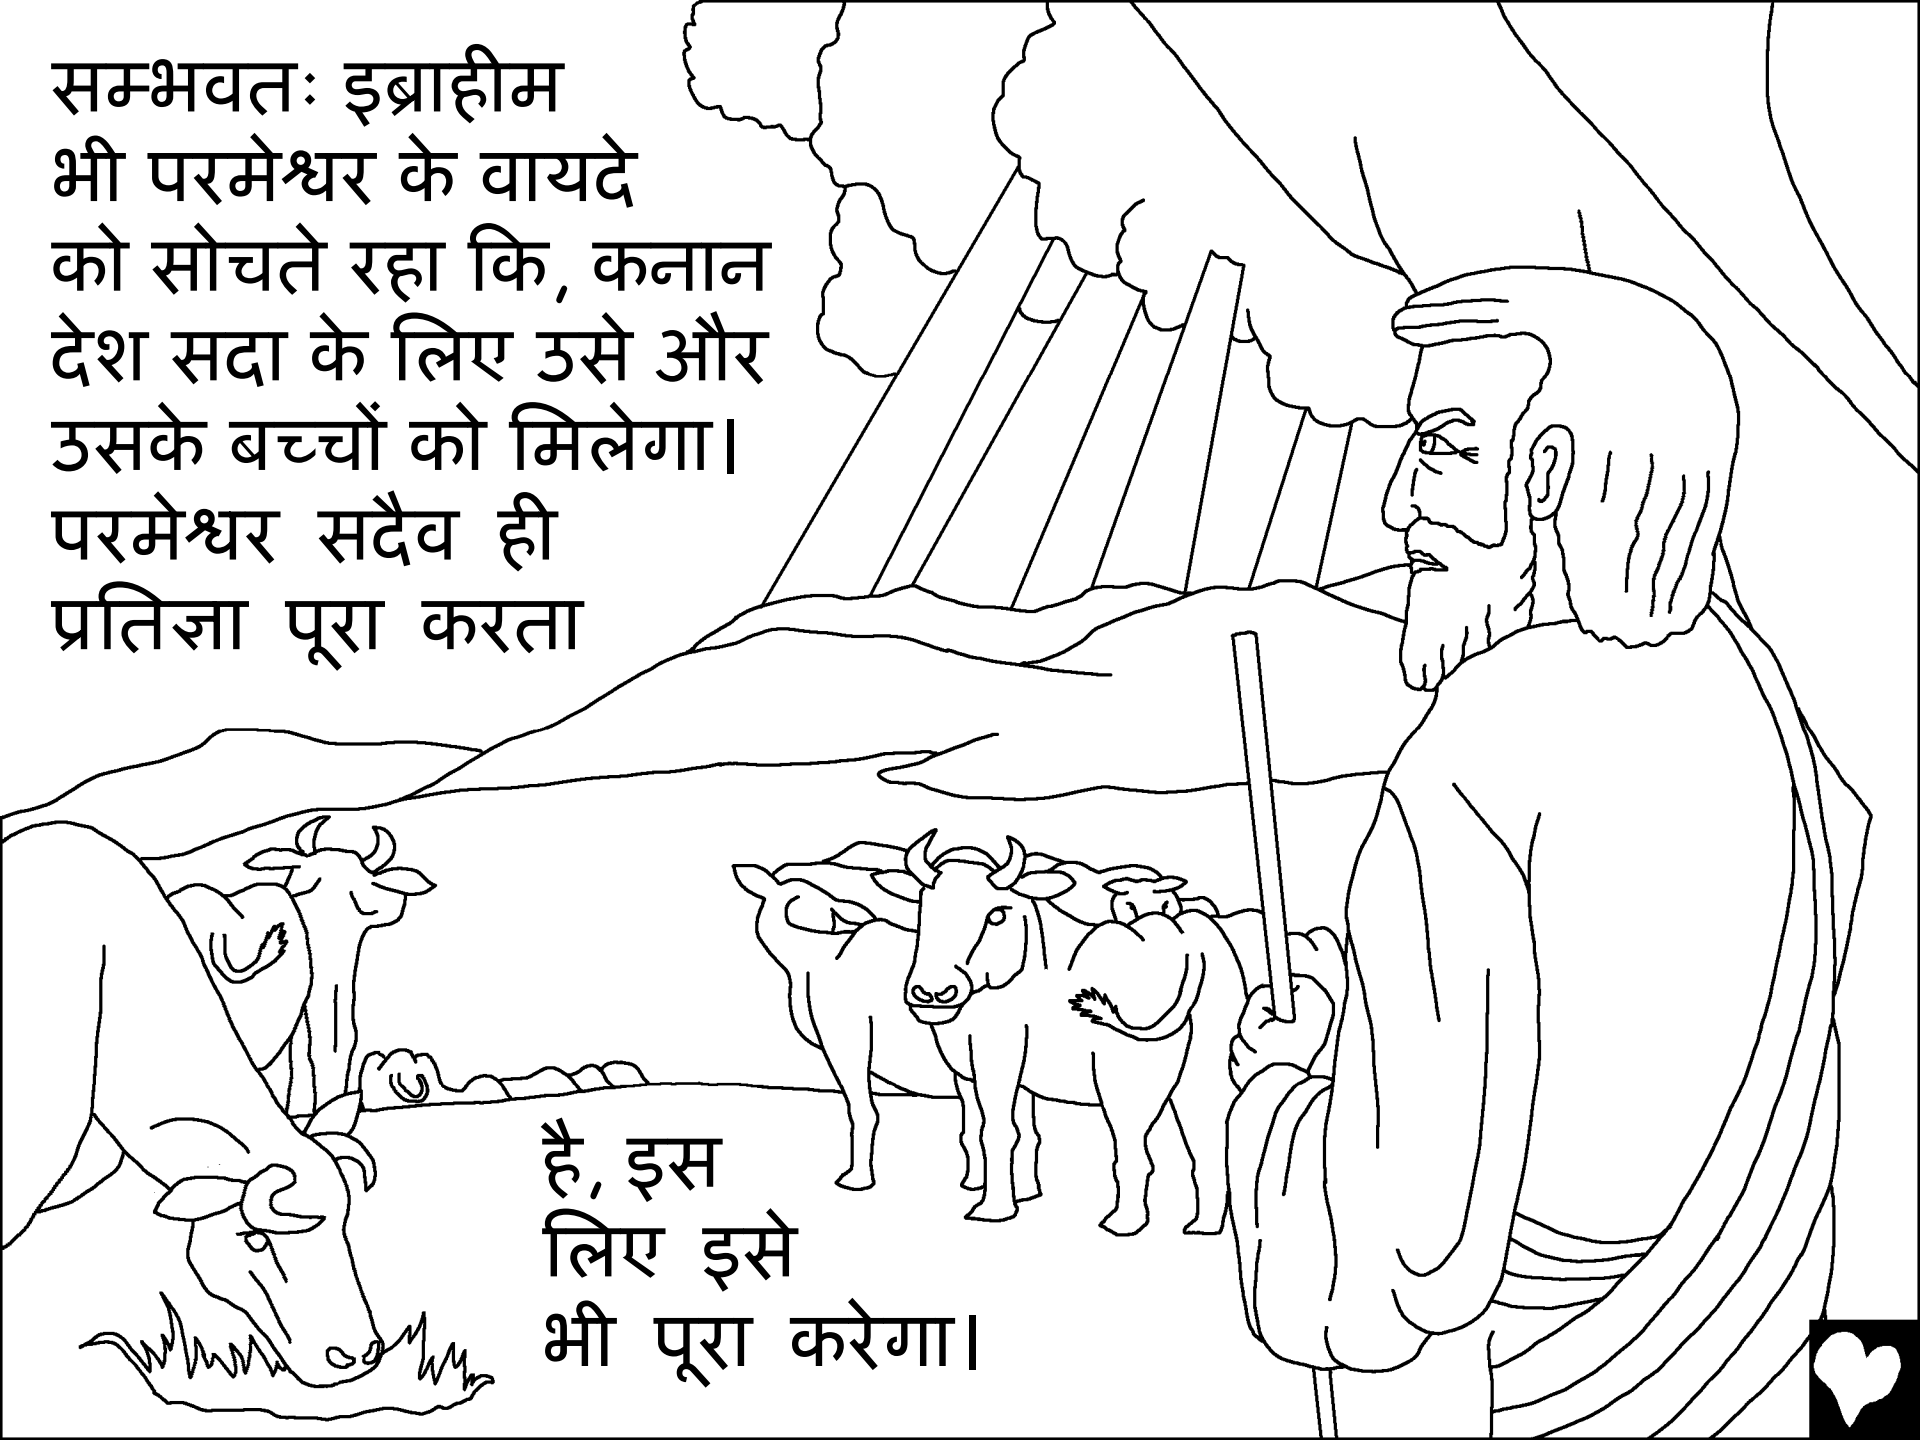 सम्भवतः इब्राहीम
भी परमेश्वर के वायदे
को सोचते रहा कि, कनान
देश सदा के लिए उसे और
उसके बच्चों को मिलेगा।
परमेश्वर सदैव ही
प्रतिज्ञा पूरा करता
है, इस
लिए इसे
भी पूरा करेगा।